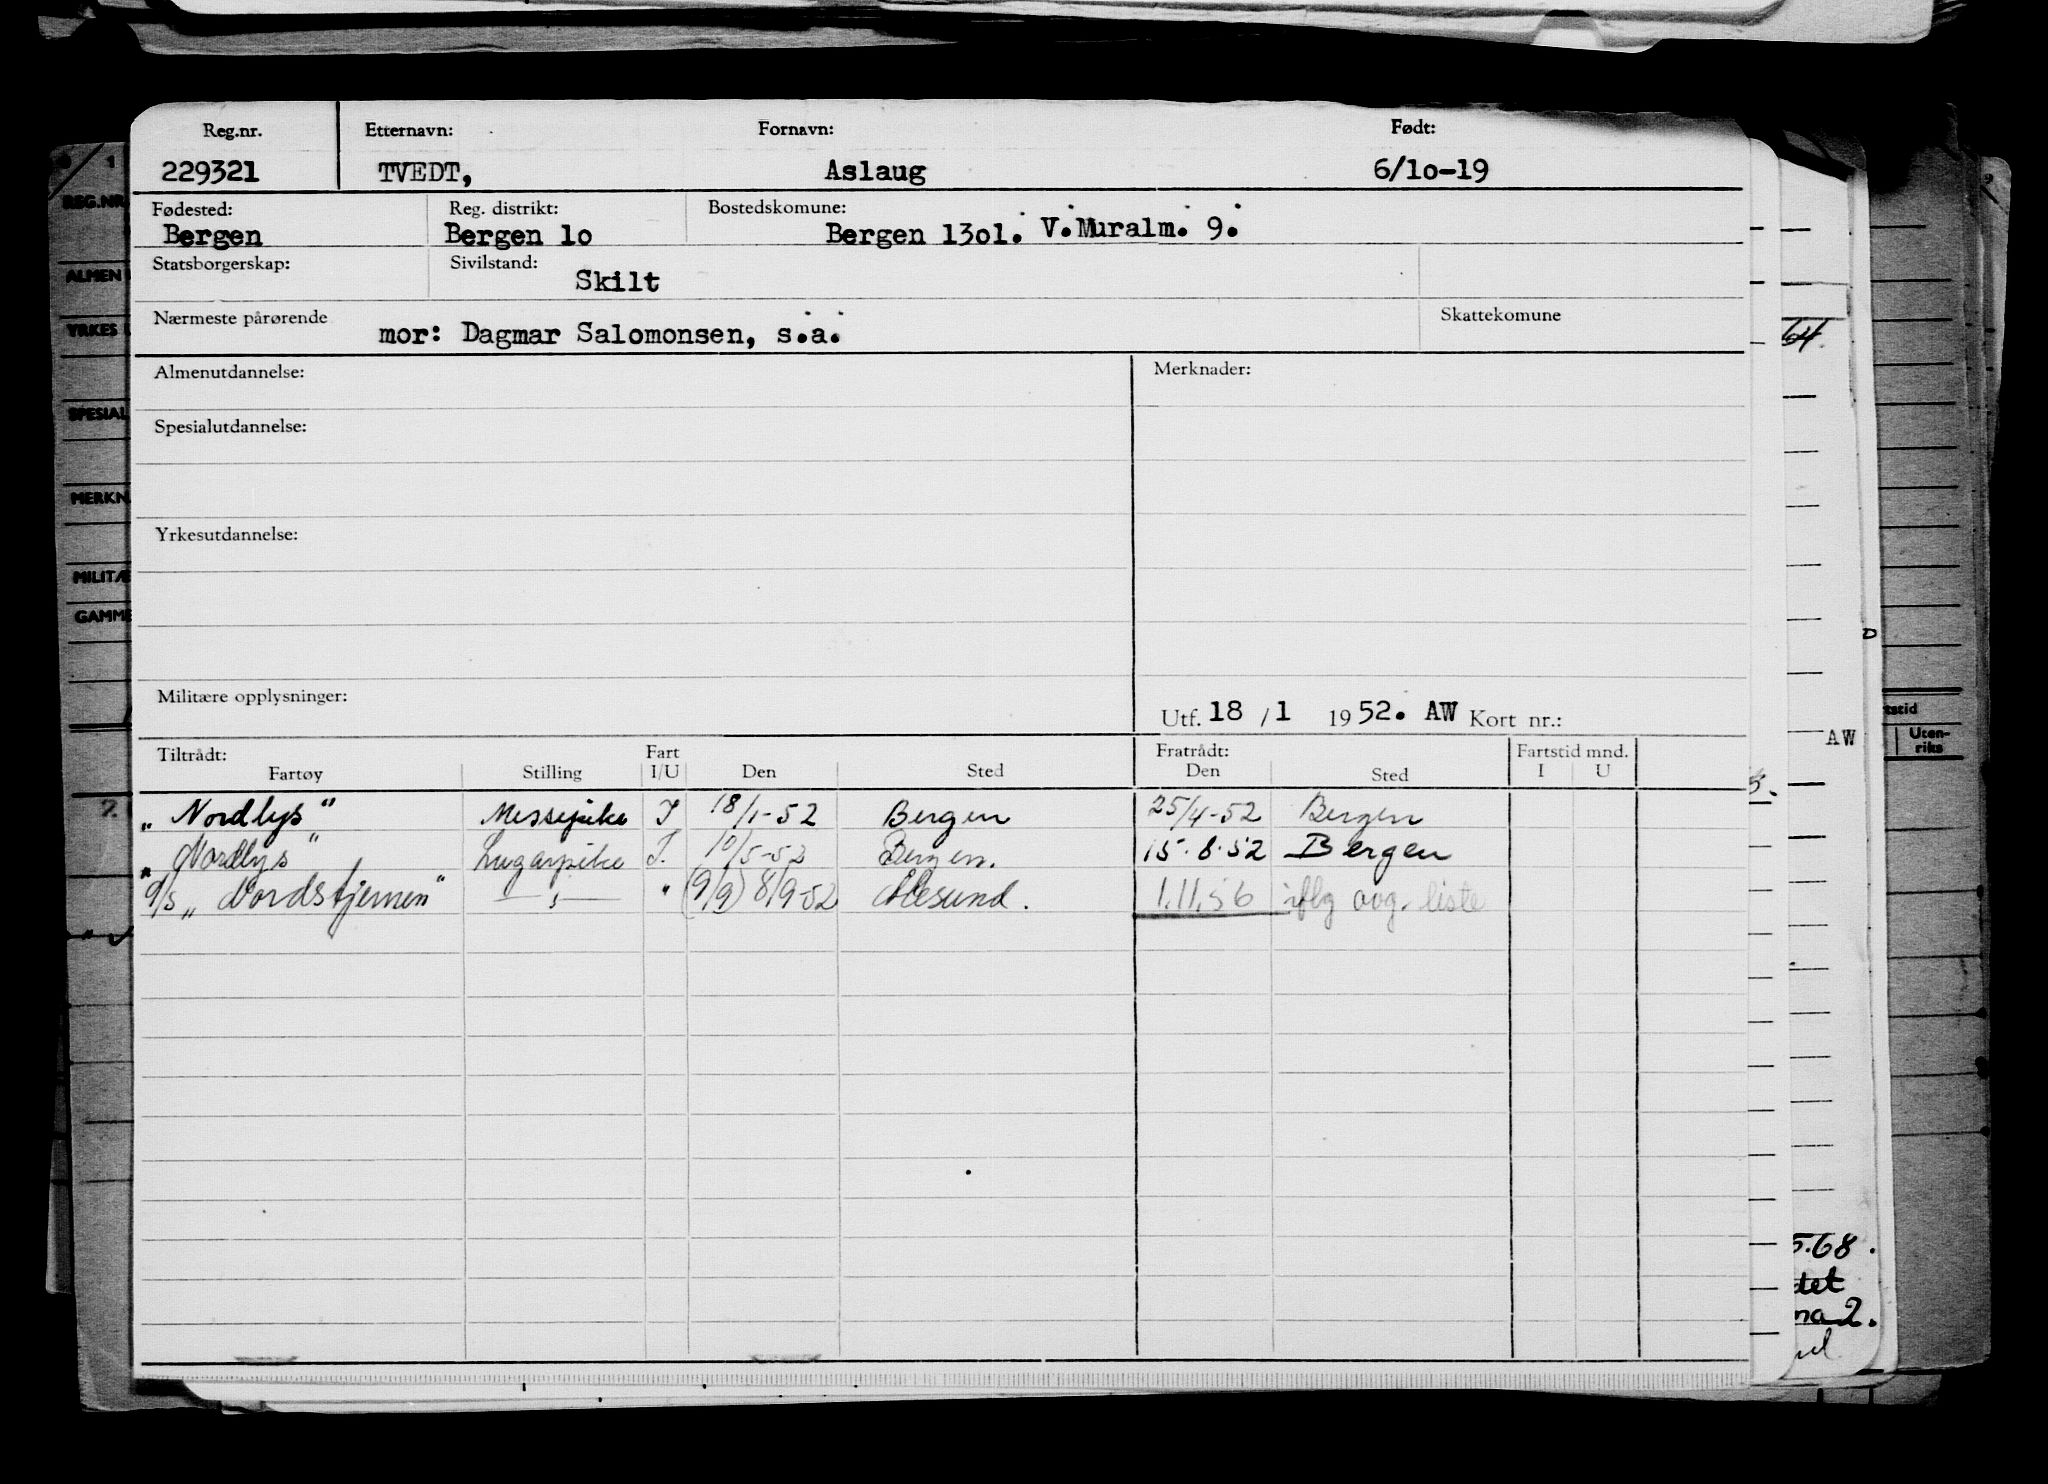 Reg.nr. Etternavn: Fornavn: Født:
229321 TVEDT, Aslaug 6/1o-19
Fødested: Reg. distrikt: Bostedskomune:
Bergen Bergen 1o Bergen 13o1. V.Muralm. 9.
Statsborgerskap: Sivilstand:
Skilt
Nærmeste pårørende Skattekomune
mor: Dagmar Salomonsen, s.a.
Almenutdannelse: Merknader:
Spesialutdannelse:
Yrkesutdannelse:
Militære opplysninger:
Utf. 18 /1 1952. AW Kort nr.:
Tiltrådt: Fart Fratrådt: Fartstid mnd.
Fartøy Stilling I/U Den Sted Den Sted I U
„Nordlys" Messepike I 18/1-52 Bergen 25/4-52 Bergen
„Nordlys" Lugarpike I. 10/5-52 Bergen. 15.8.52 Bergen
d/s „Nordstjernen" —„— " (9/9) 8/9-52 Ålesund. 1.11.56 iflg avg. liste
REG.NR
ALMEN
YRKES
SPESIAL
MERKN
MILITÆ
GAMME
64.
AW
Uten-
riks
5.68.
det
ma 2.